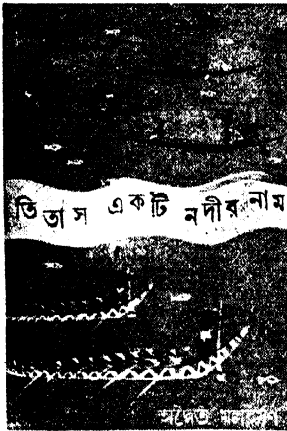 তিতাস একটি নদীর নাম
অদ্বৈত মল্লবর্মণ